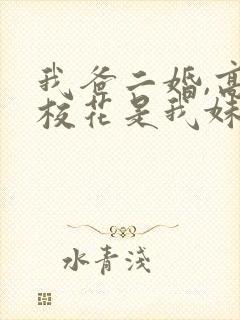 我爸二婚,高
校花是我妹
水青淺